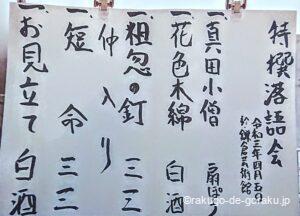 特撰落語会
令和三年四月五日
於 鎌倉芸術館
一、真田小僧 扇ぽう
一、花色木綿 白酒
一、粗忽の釘 三三
仲入り
一、短命 三三
一、お見立て 白酒
©rakugo-de-goraku.jp